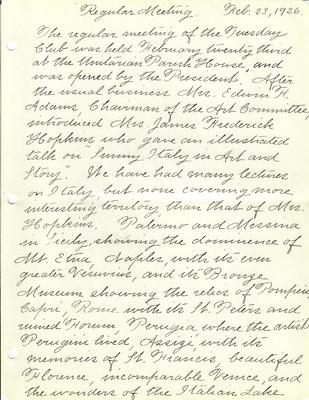 Regular Meeting Feb. 23, 1926.
The regular meeting of the Tuesday
Club was held February twenty third
at the Unitarian Parish House and
was opened by the President. After
the usual business Mrs. Edwin F.
Adams, Chairman of the Art Committee,
introduced Mrs. James Frederick
Hopkins who gave an illustrated
talk on "Sunny Italy in Art and
Story". We have had many lectures
on Italy but none covering more
interesting territory than that of Mrs.
Hopkins. Palermo and Messina
in Sicily, showing the dominence of
Mt. Etna, Naples, with its even
greater Vesuvius, and its Bronze
Museum showing the relics of Pompeii,
Capri, Rome with its St. Peters and
ruined Forum, Perugia where the artist
Perugini lived, Assizi with its
memories of St. Francis, beautiful
Florence, incomparable Venice, and
the wonders of the Italian Lake